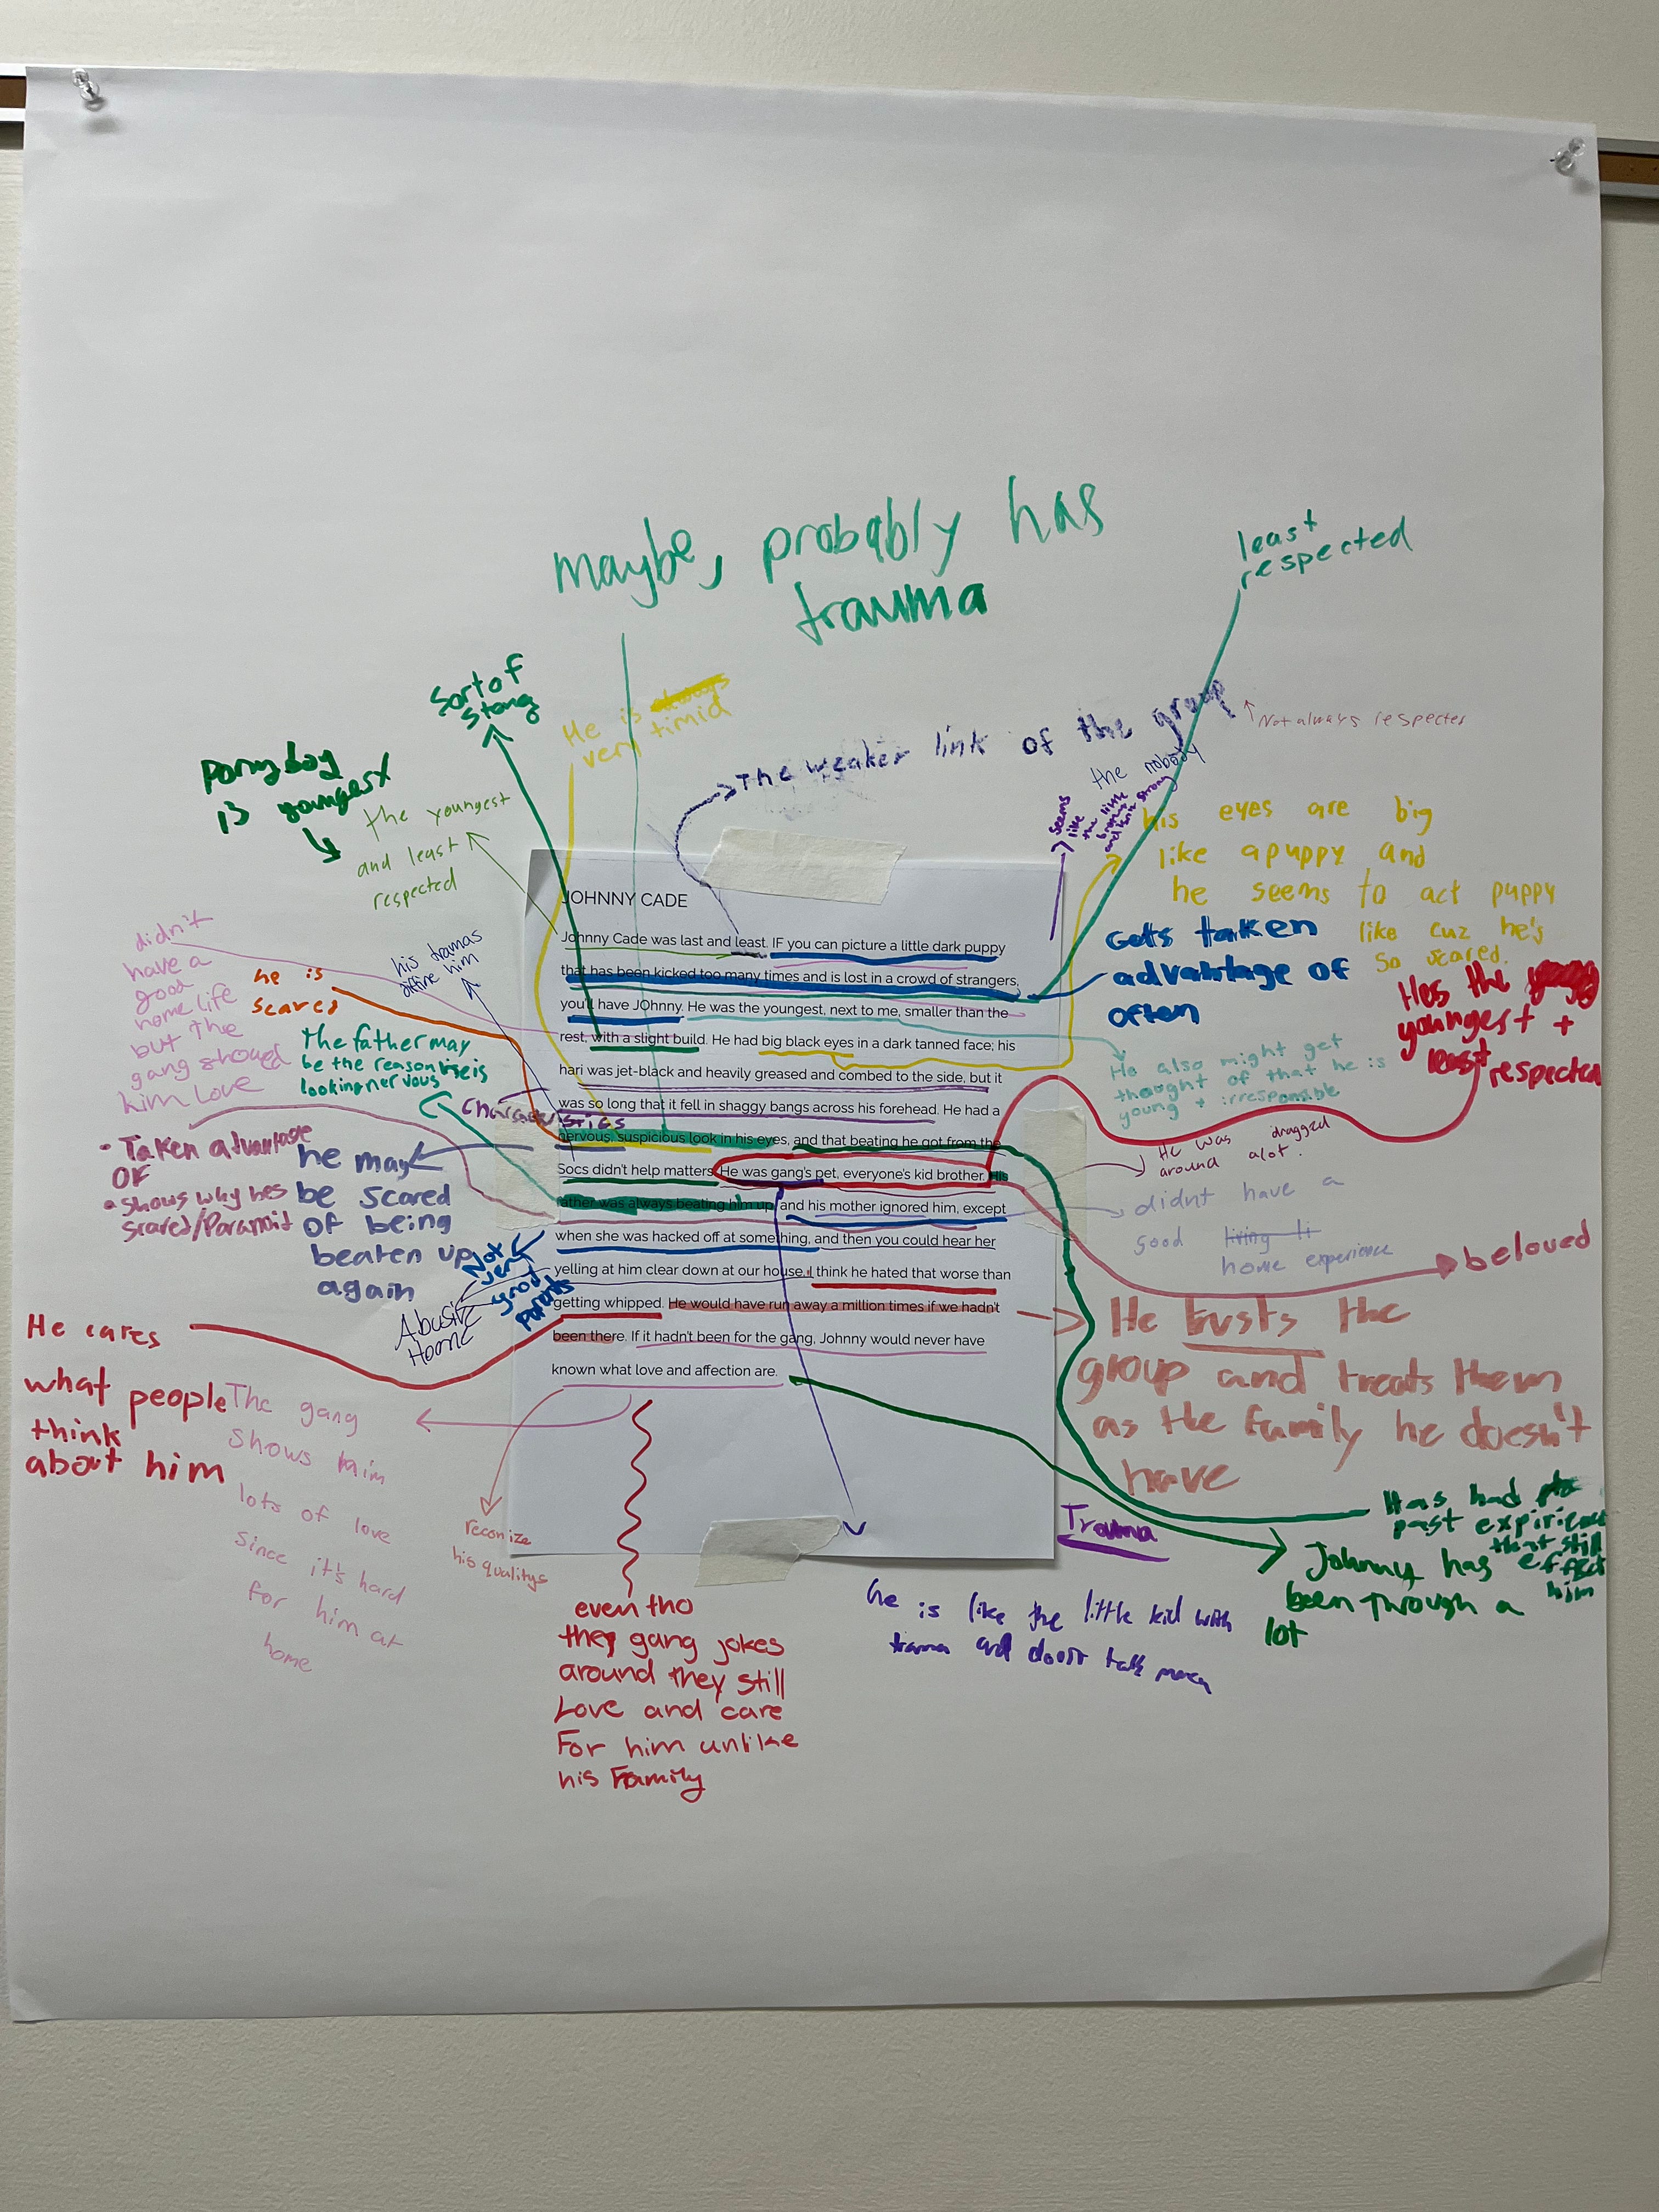 maybe, probably has
trauma
least
respected
Sort of
stong
He is always
very timid
The weaker link of the group
Not always respected
the nobody
seems
like
the little
brother
and isnt strong
ponyboy
is youngest
the youngest
and least
respected
his eyes are big
like a puppy and
he seems to act puppy
like cuz he's
so scared.
Gets taken
advantage of
often
Hes the young
youngest +
least respected
didn't
have a
good
home life
but the
gang showed
him love
he is
scared
his tramas
him
The father may
be the reason he is
looking nervous
Characteristics
He also might get
thought of that he is
young + irresponsible
JOHNNY CADE
Johnny Cade was last and least. IF you can picture a little dark puppy
that has been kicked too many times and is lost in a crowd of strangers,
you'll have JOhnny. He was the youngest, next to me, smaller than the
rest, with a slight build. He had big black eyes in a dark tanned face; his
hari was jet-black and heavily greased and combed to the side, but it
was so long that it fell in shaggy bangs across his forehead. He had a
nervous, suspicious look in his eyes, and that beating he got from the
Socs didn't help matters. He was gang's pet, everyone's kid brother. His
father was always beating him up, and his mother ignored him, except
when she was hacked off at something, and then you could hear her
yelling at him clear down at our house. I think he hated that worse than
getting whipped. He would have run away a million times if we hadn't
been there. If it hadn't been for the gang, Johnny would never have
known what love and affection are.
• Taken advantage
OF
• Shows why hes
scared/Paranoid
he may
be scared
of being
beaten up
again
Not
very
good
parents
Abusive
Home
He was dragged
around alot.
didnt have a
good living li
home experience
beloved
He trusts the
group and treats them
as the family he doesn't
have
He cares
what people
think
about him
The gang
shows him
lots of love
since it's hard
for him at
home
reconize
his qualitys
even tho
they gang jokes
around they still
Love and care
For him unlike
his Family
Trauma
he is like the little kid with
trama and doesnt talk much
Has had
past expirience
that still
effect
him
Johnny has
been through a
lot